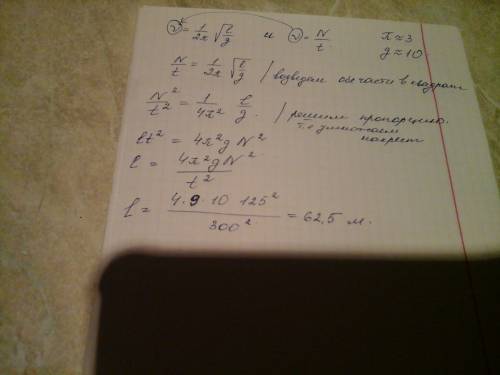 ν = 1/2π √l/g и ν = N/t π ≈ 3
g ≈ 10
N/t = 1/2π √l/g / возведем обе части в квадрат
N²/t² = 1/4π² l/g / решим пропорцию.
т.е умножаем
накрест
lt² = 4π²gN²
l = 4π²gN²/t²
l = 4·9·10 125²/300² = 62,5 м.